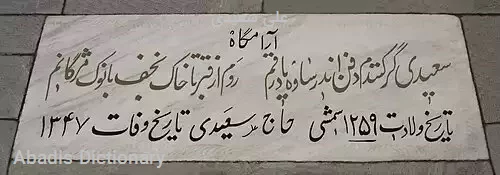 علی سعیدی
آرامگاه
سعیدی گر کنندم دفن اندر ساوه یا در قم روم از قبر تا خاک نجف با نوک مژگانم
تاریخ ولادت ۱۲۵۹ شمسی حاج سعیدی تاریخ وفات ۱۳۴۷
Abadis Dictionary